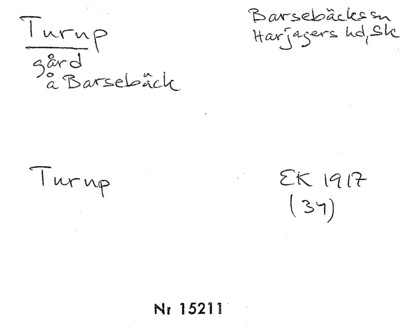 Turup
Barsebäcks sn
Harjagers hd, Sk
gård
å Barsebäck
Turup
EK 1917
(34)
Nr 15211